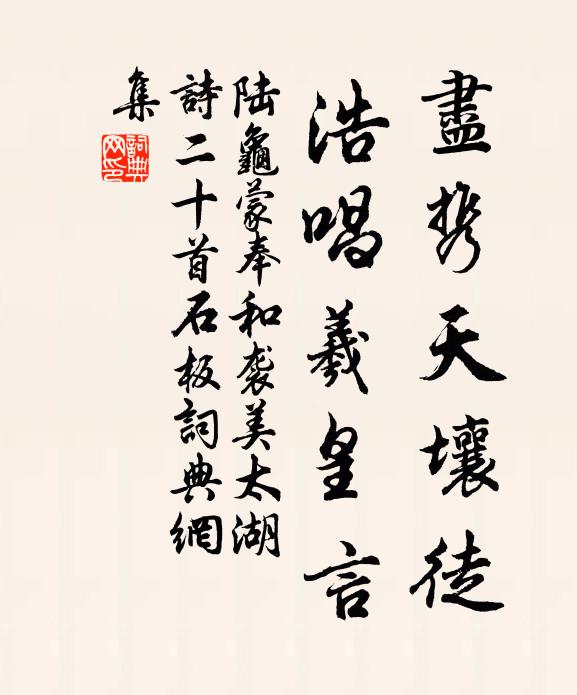 盡携天壤徒
浩唱羲皇言
陆龜蒙奉和袭美太湖
詩二十首石板詞典網
集
詞典
网印